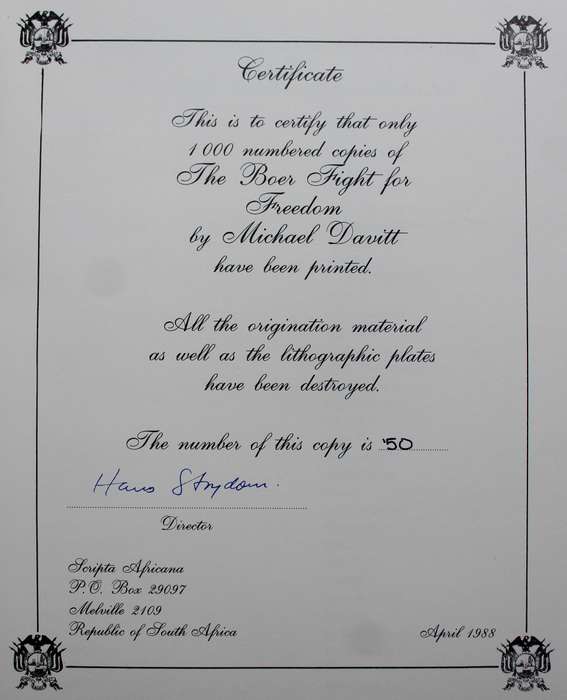 Certificate
This is to certify that only
1 000 numbered copies of
The Boer Fight for
Freedom
by Michael Davitt
have been printed.
All the origination material
as well as the lithographic plates
have been destroyed.
The number of this copy is 50
Hans Strydom.
Director
Scripta Africana
P.O. Box 29097
Melville 2109
Republic of South Africa
April 1988